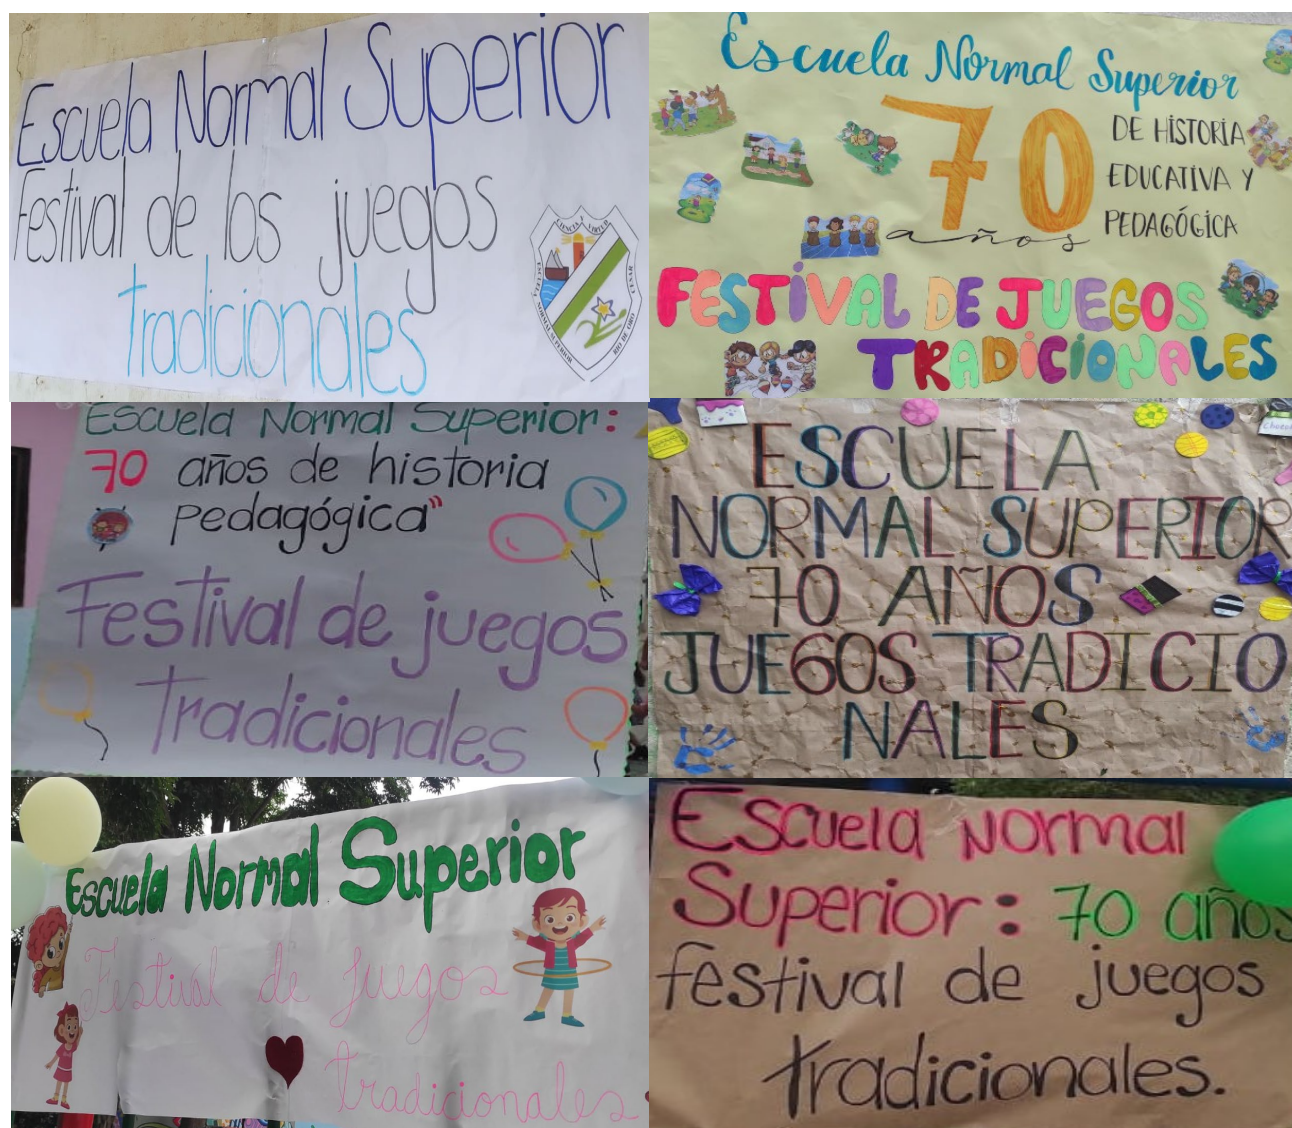 Escuela Normal Superior
Festival de los juegos
tradicionales
CIENCIA Y VIRTUD
ESCUELA NORMAL SUPERIOR
RIO DE ORO CESAR
Escuela Normal Superior
70
años
DE HISTORIA
EDUCATIVA Y
PEDAGÓGICA
FESTIVAL DE JUEGOS
TRADICIONALES
Escuela Normal Superior:
70 años de historia
pedagógica"
Festival de juegos
tradicionales
ESCUELA
NORMAL SUPERIOR
70 AÑOS
JUEGOS TRADICIO
NALES
Escuela Normal Superior
Festival de juegos
tradicionales.
Escuela Normal
Superior: 70 años
festival de juegos
tradicionales.